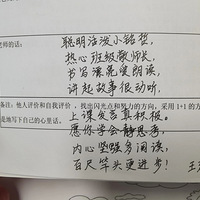 老师的话:
聪明活泼小铭哲,
热心班级敬师长,
书写漂亮爱朗读,
讲起故事很动听,
备注:他人评价和自我评价,找出闪光点和努力的方向,采用1+1的方
是地写下自己的心里话。
上课发言真积极。
愿你学会静思考,
内心坚强多阅读,
百尺竿头更进步!